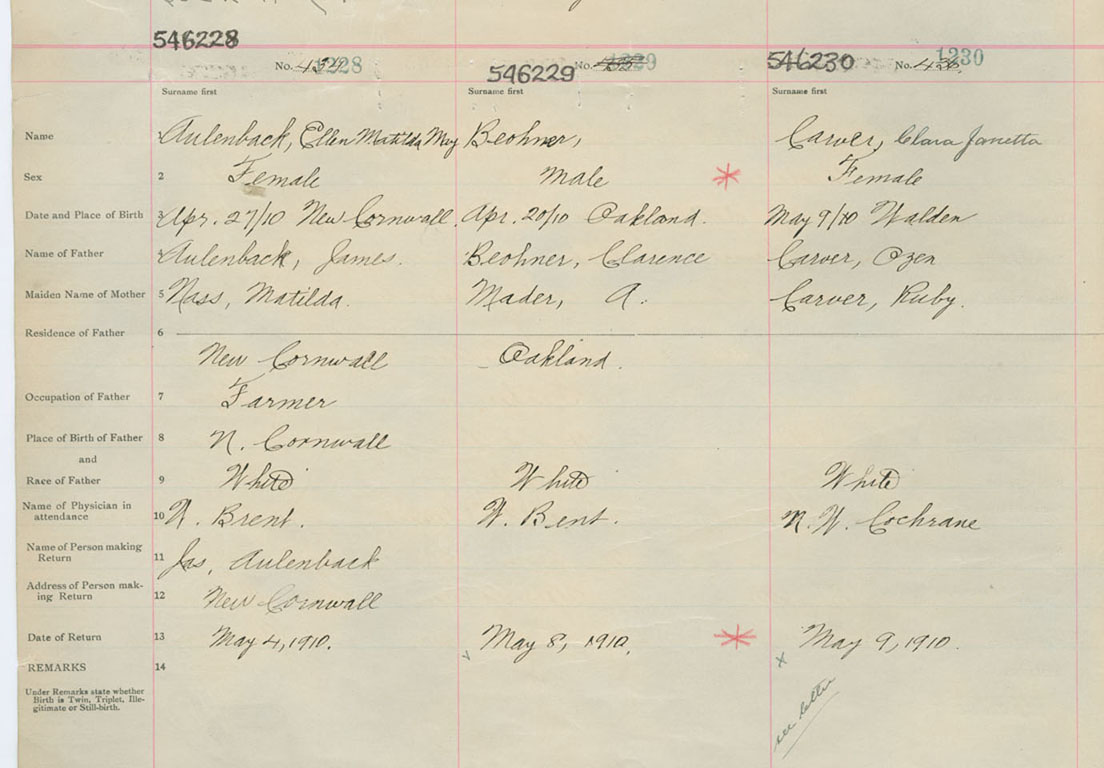 546228 546229 546230
No. 454 1228 No. 1229 No. 456 1230
Surname first Surname first Surname first
Name 1 Aulenback, Ellen Matilda May Beohner, Carver, Clara Janetta
Sex 2 Female Male Female
Date and Place of Birth 3 Apr. 27/10 New Cornwall. Apr. 20/10 Oakland. May 9/10 Walden
Name of Father 4 Aulenback, James. Beohner, Clarence Carver, Ozen
Maiden Name of Mother 5 Nass, Matilda. Mader, A. Carver, Ruby.
Residence of Father 6
New Cornwall Oakland.
Occupation of Father 7 Farmer
Place of Birth of Father 8 N. Cornwall
and
Race of Father 9 White White White
Name of Physician in
attendance 10 W. Brent. W. Bent. N. W. Cochrane
Name of Person making
Return 11 Jas, Aulenback
Address of Person mak-
ing Return 12 New Cornwall
Date of Return 13 May 4, 1910. May 8, 1910. May 9, 1910.
REMARKS 14
Under Remarks state whether
Birth is Twin, Triplet, Ille-
gitimate or Still-birth.
see letter